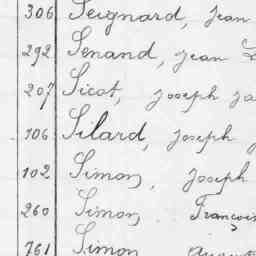 306 Seignard, Jean
292 Senand, Jean
207 Sicot, Joseph
106 Silard, Joseph
102 Simon, Joseph
260 Simon François
761 Simon